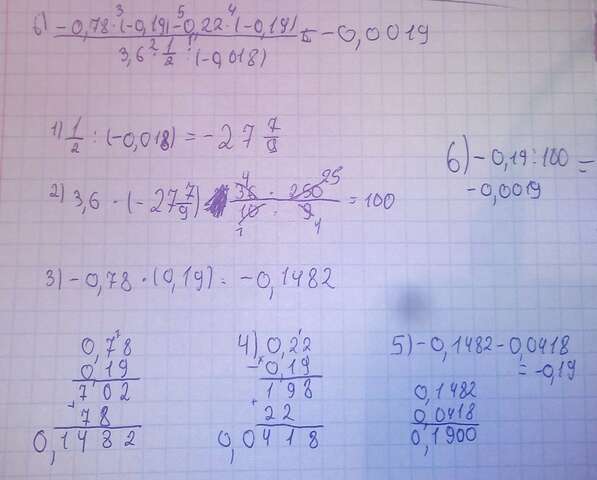 б) -0,78·(-0,19)-0,22·(-0,19) / 3,6·1/2:(-0,018) = -0,0019
3 5 4
2 1
1) 1/2 : (-0,018) = -27 7/9
2) 3,6 · (-27 7/9) 36 · 250 / 10 · 9 = 100
4 25
1 1
3) -0,78 · (0,19) = -0,1482
0,78
0,19
702
+
78
0,1482
4) 0,22
× 0,19
198
+
22
0,0418
5) -0,1482-0,0418
= -0,19
0,1482
0,0418
0,1900
6) -0,19:100 =
-0,0019